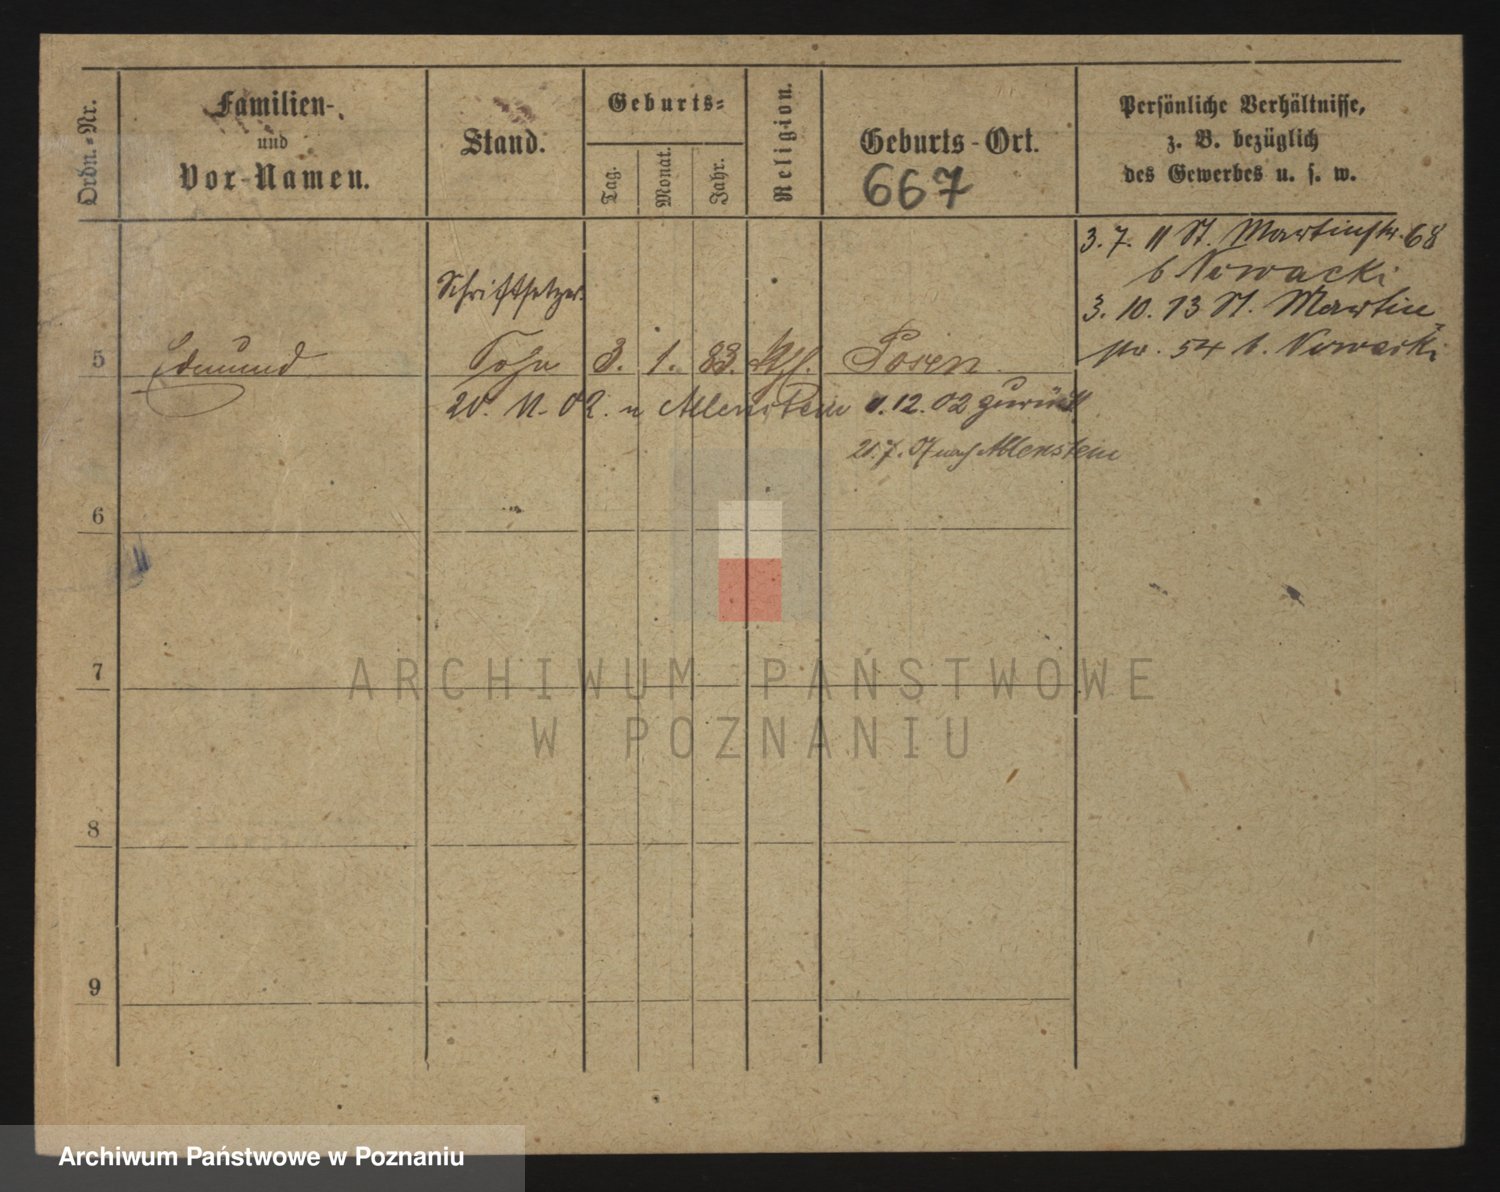 Ordn.-Nr.
Familien-
und
Vor-Namen.
Stand.
Geburts-
Tag.
Monat.
Jahr.
Religion.
Geburts-Ort.
667
Persönliche Verhältnisse,
z. B. bezüglich
des Gewerbes u. s. w.
3. 7. 11 St. Martinstr. 68
b Nowacki
3. 10. 13 St. Martin
str. 54 b. Nowacki
Schriftsetzer
5 Edmund Sohn 3. 1. 83. Posen
20. 11. 02. n Allenstein 1. 12. 02 zurück
20. 7. 07 nach Allenstein
6
7
8
9
ARCHIWUM PAŃSTWOWE
W POZNANIU
Archiwum Państwowe w Poznaniu